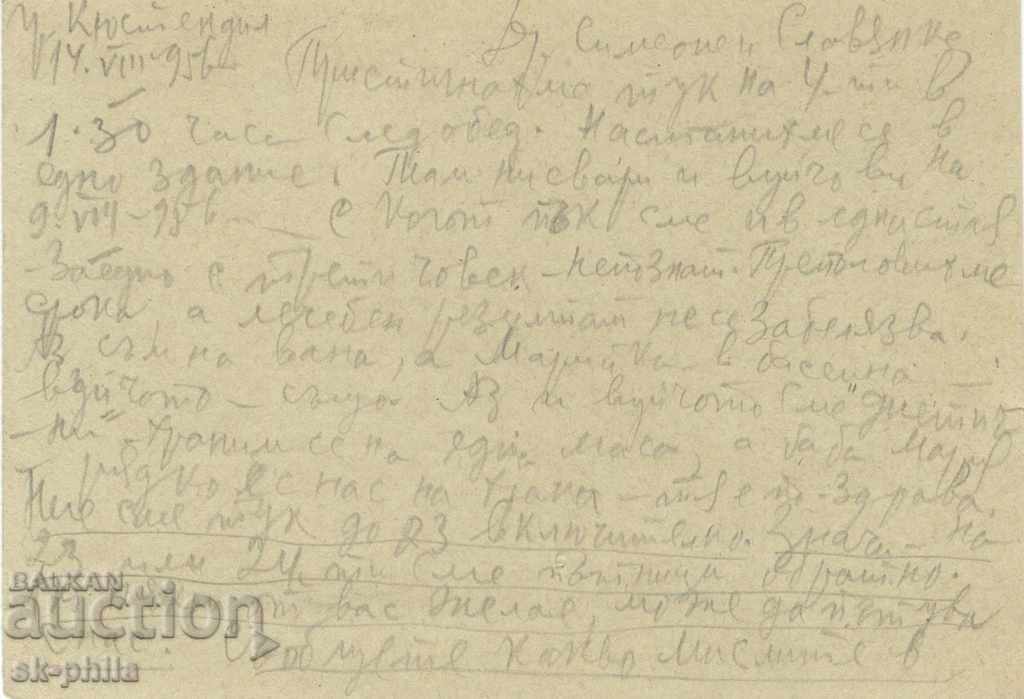 гр. Кюстендил
14.VIII-95г.
Др. Симеонен, Славянке,
Пристигнахме тук на 4-ти в
1.30 часа след обед. Настанихме се в
едно здание. Там ни свари и вуйчо ви на
9.VIII-95г. с когото пък сме и в една стая
-Заедно с трети човек-непознат. Преполовихме
срока, а лечебен резултат не се забелязва.
Аз съм на вана, а Марийка - в басейна
вуйчото - също. Аз и вуйчото сме "диетич-
-ни". Храним се на една маса, а баба Мария
рядко е с нас на храна - тя е по-здрава.
Ние сме тук до 23 включително. Значи - на
23 или 24-ти сме пътници обратно.
от вас желае, може да пътува
с нас. Обадете какво мислите в
BALKAN
auction
sk-phila